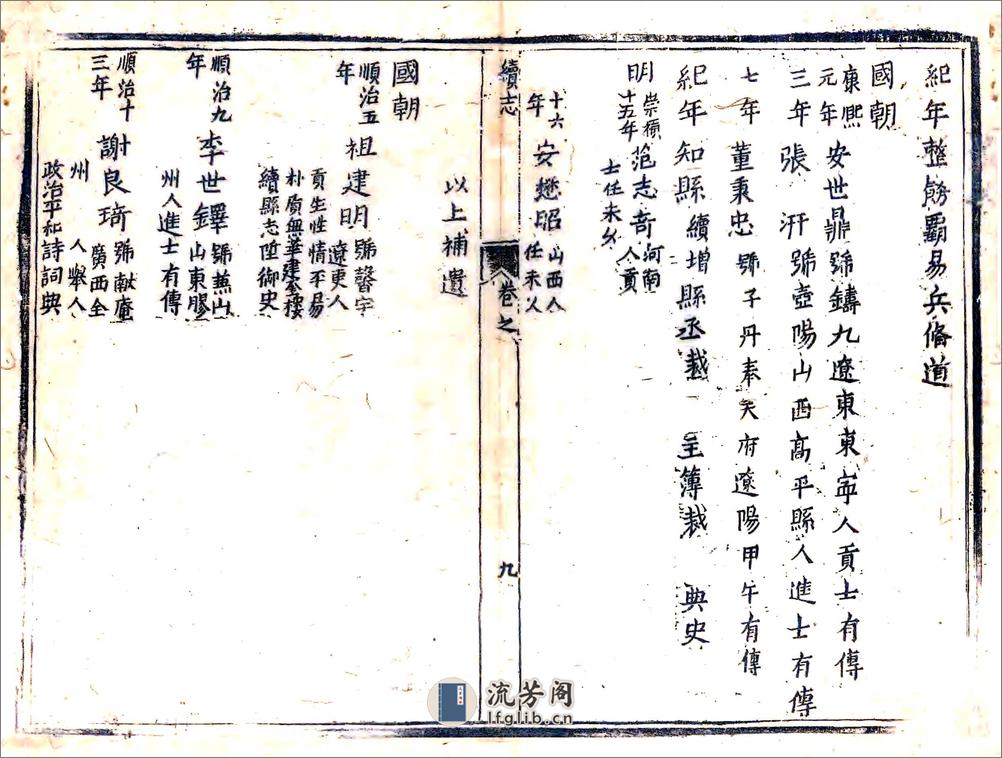 紀年整飭霸易兵備道
國朝
康熙元年 安世鼎號鑄九遼東東寧人貢士有傳
三年 張汧號壺陽山西高平縣人進士有傳
七年 董秉忠號子丹奉天府遼陽甲午有傳
紀年知縣續增縣丞裁 主簿裁 典史
明崇禎十五年 范志竒河南人貢士任未久
十六年 安懋昭山西人任未久
續志 卷之 九
以上補遺
國朝
順治五年 祖建明號警宇遼東人貢生性情平易朴质無華建奎樓續縣志陞御史
順治九年 李世鐸號無山山東膠州人進士有傳
順治十三年 謝良琦號献庵廣西全州人舉人政治平和詩詞典
流芳阁
lfglib.cn